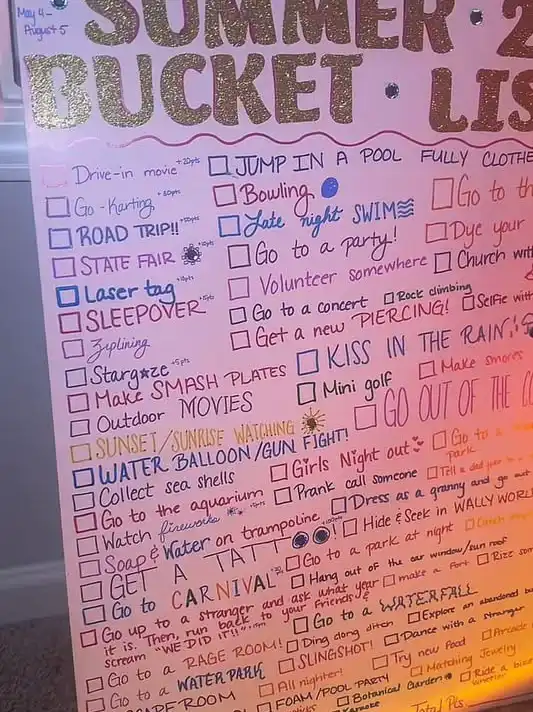 May 4-
August 5
SUMMER 2
BUCKET LIS
Drive-in movie +20pts
Go-Karting
ROAD TRIP!!
STATE FAIR
Laser tag
SLEEPOVER
Ziplining
Stargaze +5pts
Make SMASH PLATES
Outdoor MOVIES
SUNSET/SUNRISE WATCHING
WATER BALLOON/GUN FIGHT!
Collect sea shells
Go to the aquarium
Watch fireworks
Soap & Water on trampoline
GET A TATTOO!
Go to CARNIVAL
Go up to a stranger and ask what year
it is. Then, run back to your friends &
scream "WE DID IT!!"
Go to a RAGE ROOM!
Go to a WATER PARK
SCAPE ROOM
JUMP IN A POOL FULLY CLOTHE
Bowling
Late night SWIM
Go to a party!
Volunteer somewhere
Go to a concert
Rock climbing
Get a new PIERCING!
Selfie with
KISS IN THE RAIN!
Mini golf
Make smores
GO OUT OF THE CO
Girls Night out
Go to a
park
Prank call someone
Tell a
Dress as a granny and go out
Hide & Seek in WALLY WORLD
Go to a park at night
Hang out of the car window/sun roof
make a fort
Go to a WATERFALL
Ding dong ditch
Explore an abandoned bu
SLINGSHOT!
Dance with a stranger
All nighter!
Try new food
Arcade
FOAM/POOL PARTY
Matching Jewelry
Botanical Garden
Ride a bike
Karaoke
Total Pts
Go to th
Dye your
Church with